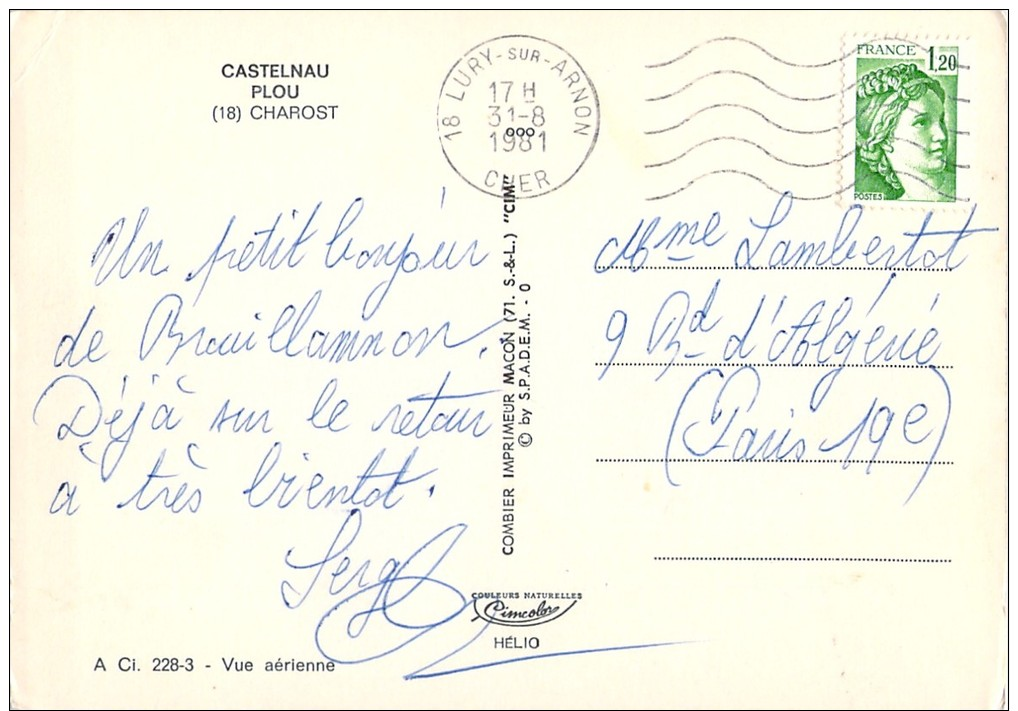 CASTELNAU
PLOU
(18) CHAROST
18 LURY-SUR-ARNON
17 H
31-8
1981
CHER
FRANCE 1,20
POSTES
Un petit bonjour
de Brouillamnon.
Déjà sur le retour
à très bientot.
Serge
COMBIER IMPRIMEUR MACON (71. S.-&-L.) "CIM"
© by S.P.A.D.E.M. - 0
Mme Lambertot
9 Bd d'Algérie
(Paris 19e)
COULEURS NATURELLES
Cimcolor
HÉLIO
A Ci. 228-3 - Vue aérienne